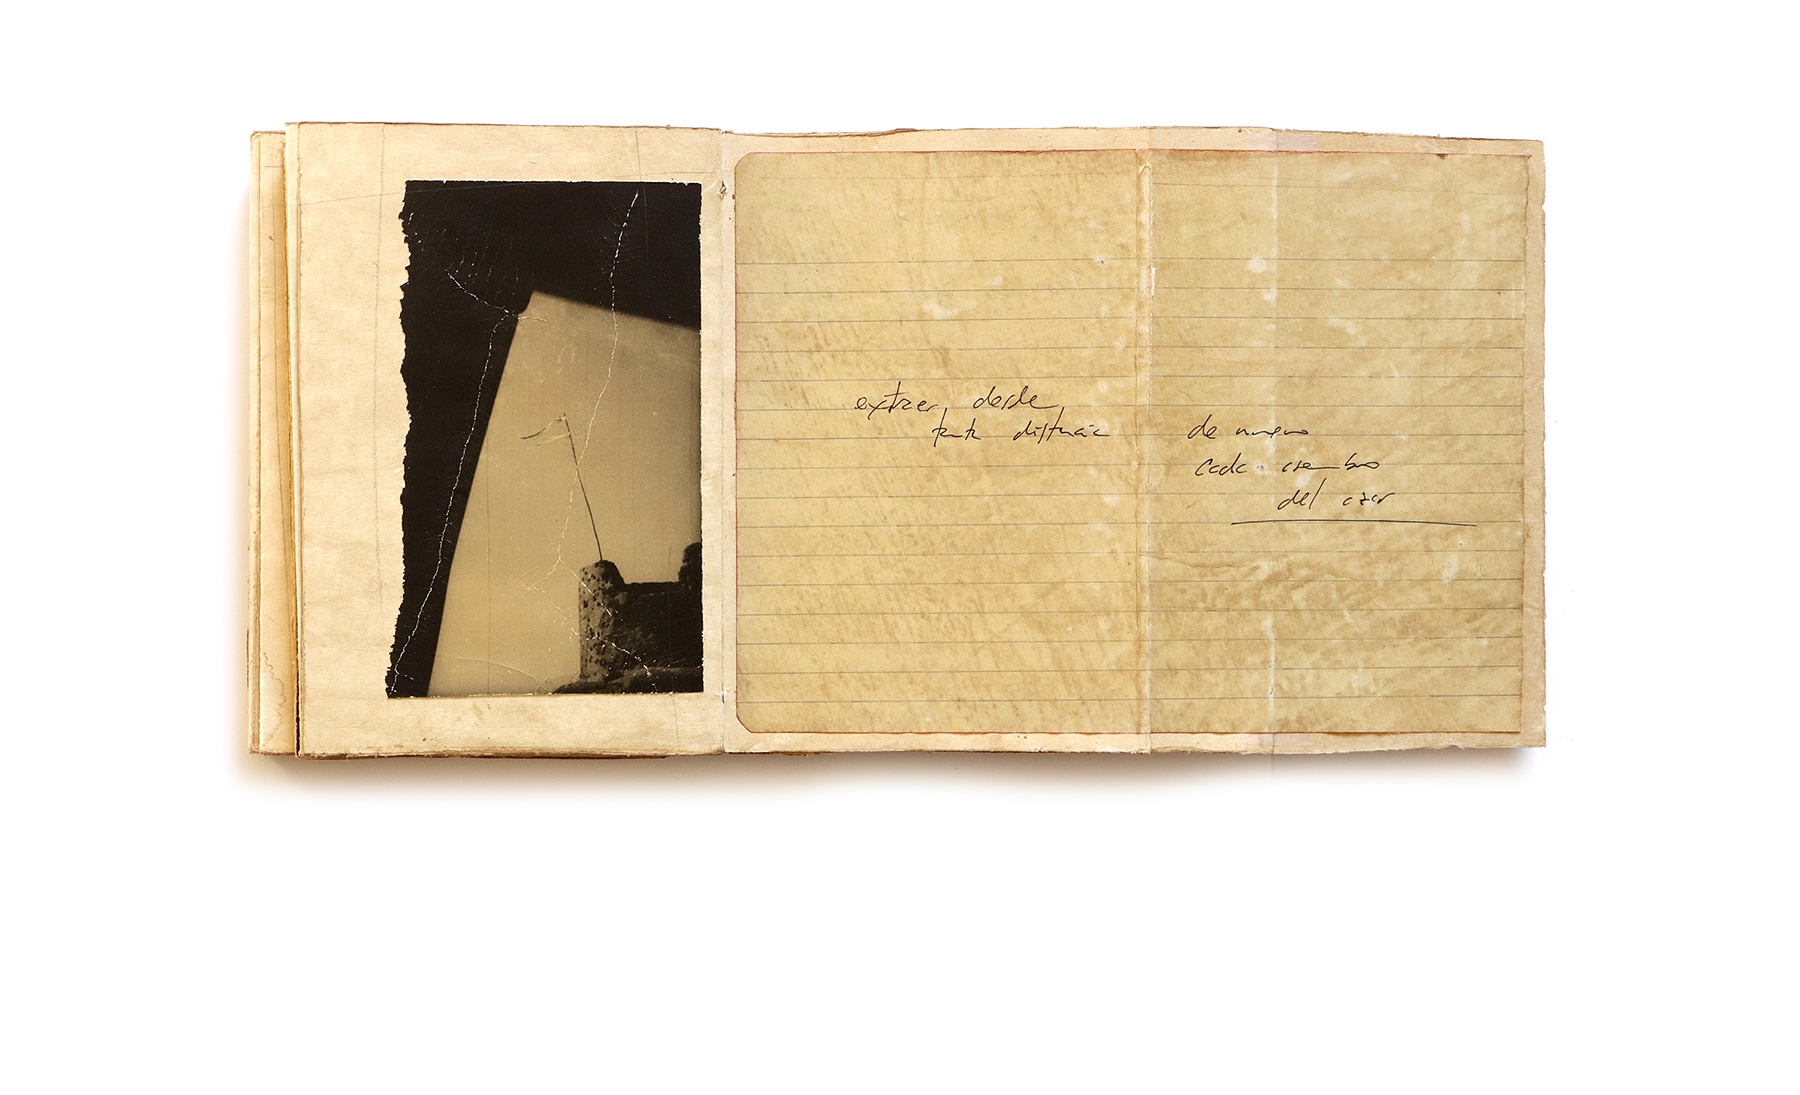 extraer desde
tanta distancia
de nuevo
cada asombro
del azar